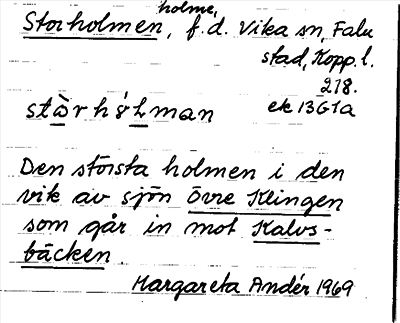 Storholmen, holme, f.d. Vika sn, Falu
stad, Kopp. l.
218.
ek 13G1a
stὰrhɷ́lman
Den största holmen i den
vik av sjön Övre Klingen
som går in mot Kalvs-
bäcken.
Margareta Andér 1969